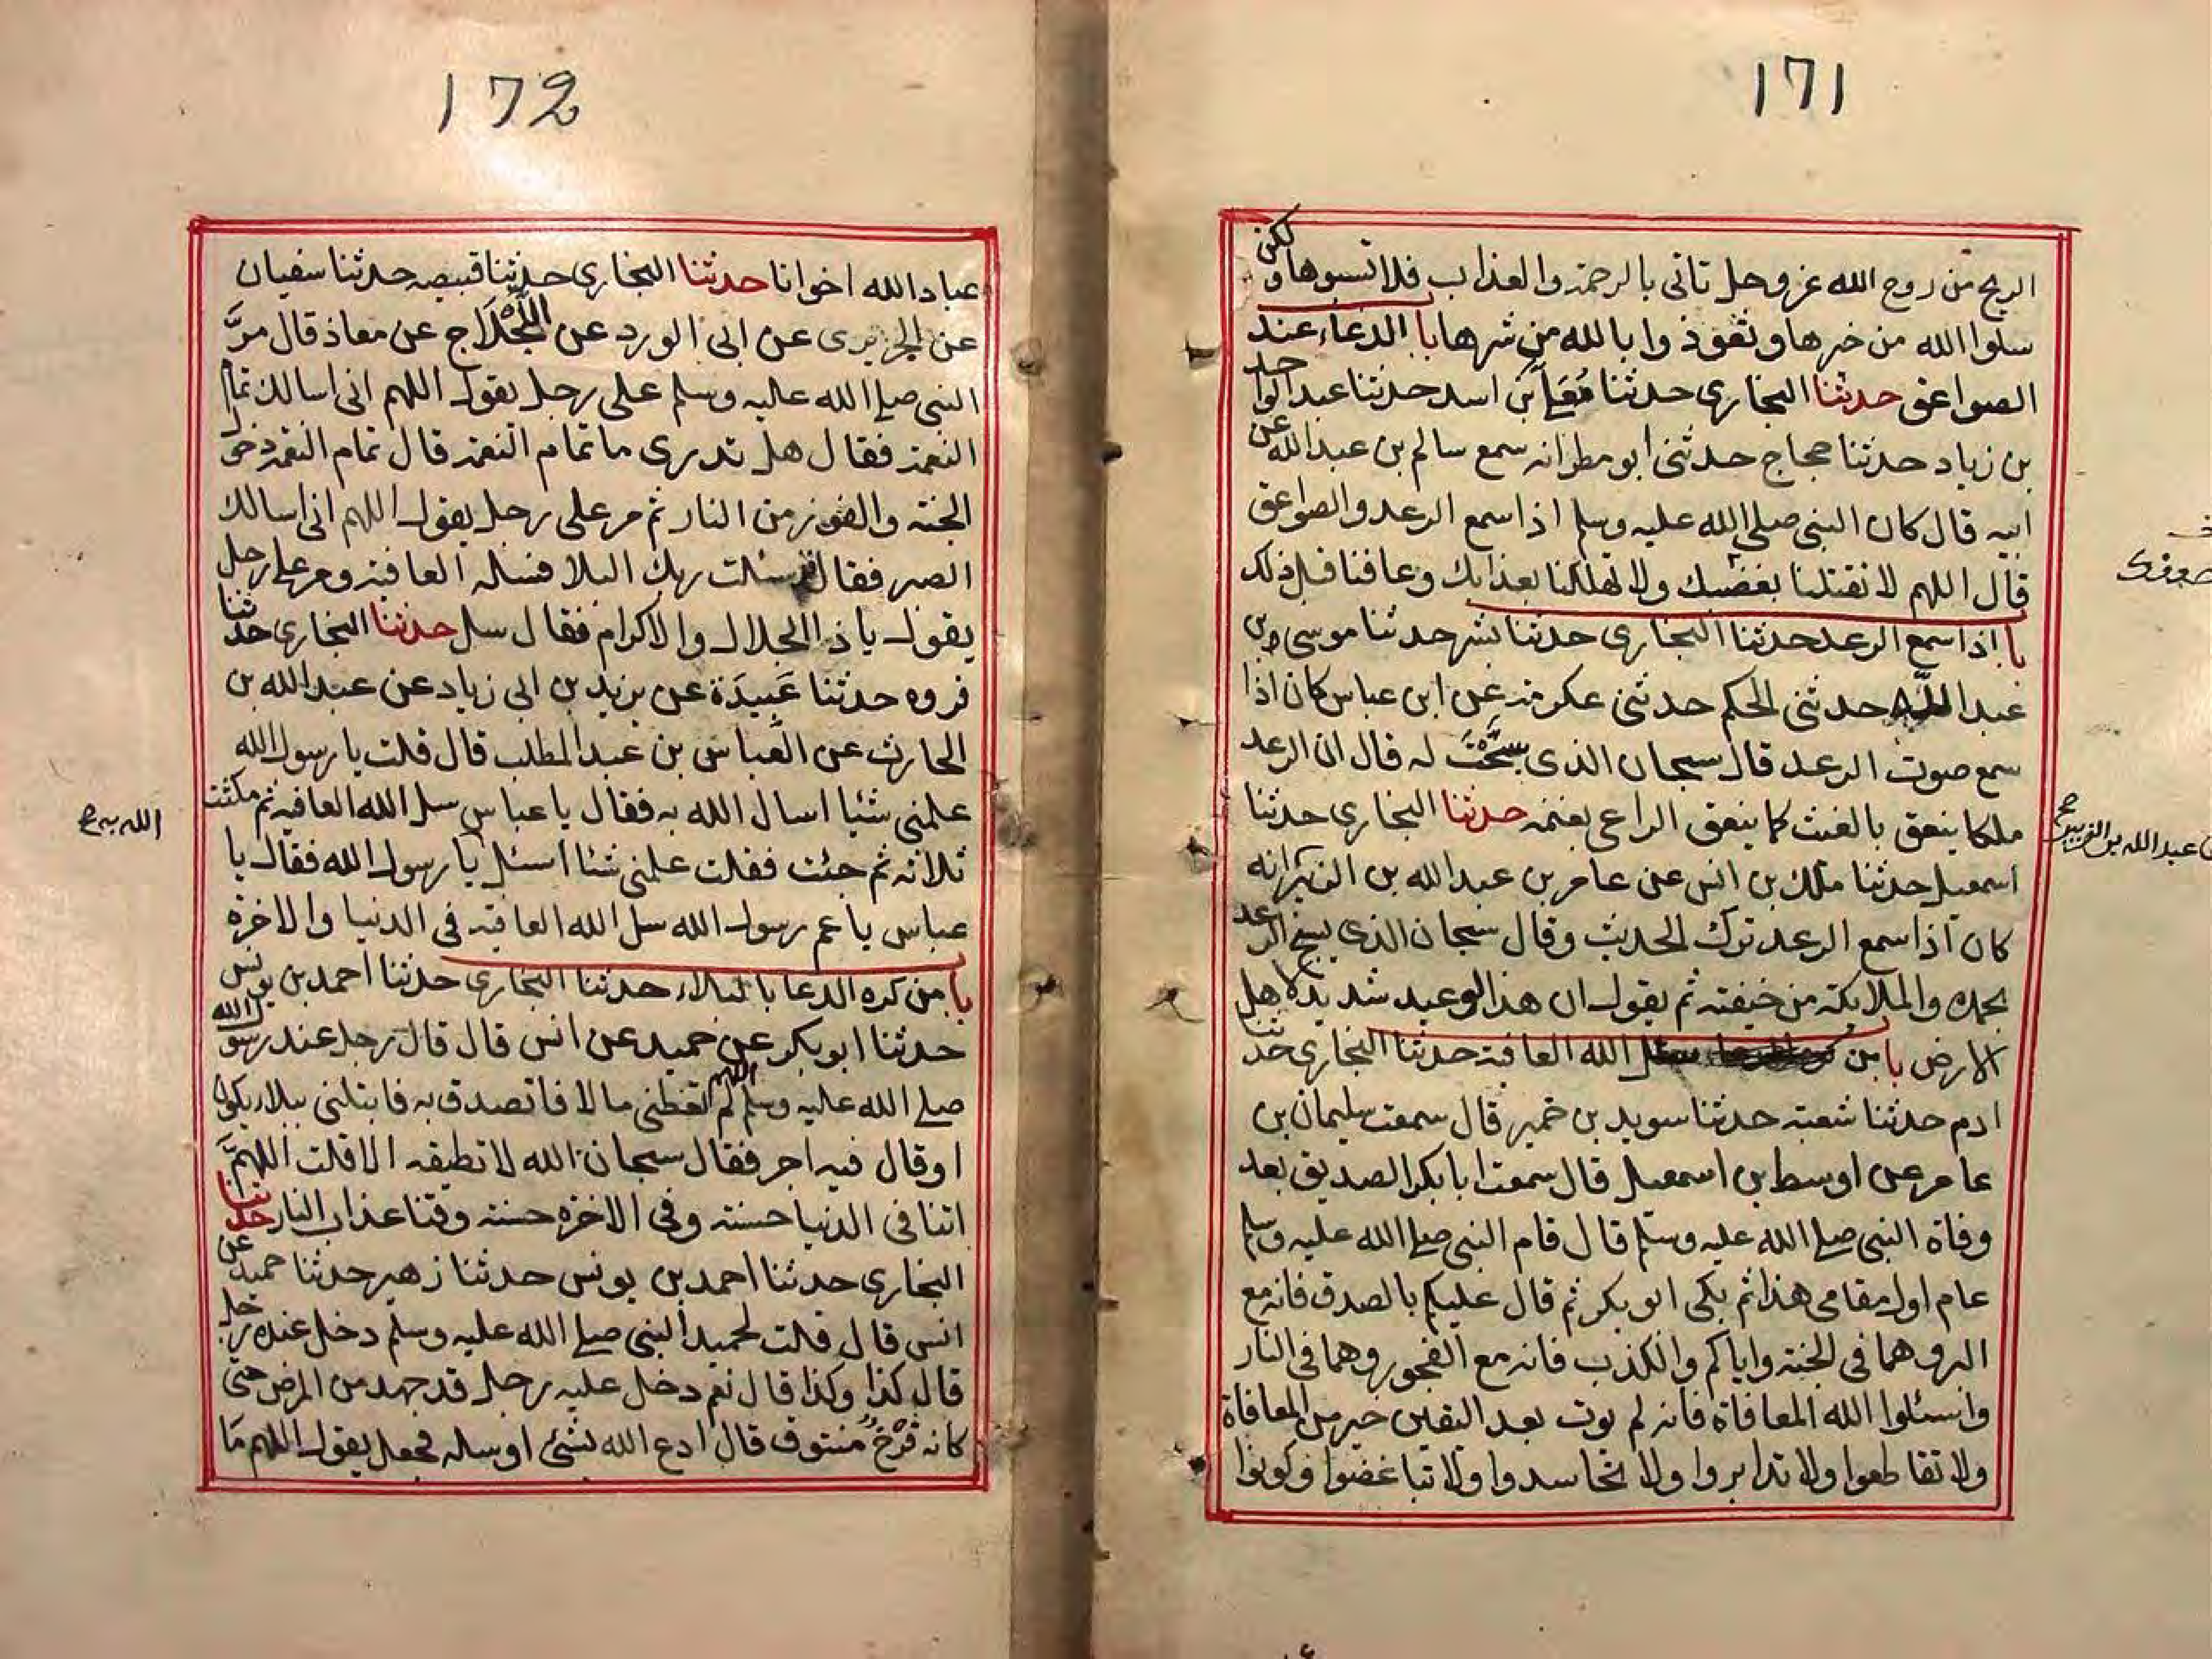 171
الريح من روح الله عز وجل تاتى بالرحمة والعذاب فلا تسبوها ولكن
سلوا الله من خيرها وتعوذوا بالله من شرها با الدعاء عند
الصواعق حدثنا البخارى حدثنا مُعَلَّى بن اسد حدثنا عبد الواحد
بن زياد حدثنا حجاج حدثنى ابو مطر انه سمع سالم بن عبد الله عن
ابيه قال كان النبى صلى الله عليه وسلم اذا سمع الرعد والصواعق
قال اللهم لا تقتلنا بغضبك ولا تهلكنا بعذابك وعافنا قبل ذلك
با اذا سمع الرعد حدثنا البخارى حدثنا بشر حدثنا موسى بن
عبد الله حدثنى الحكم حدثنى عكرمة عن ابن عباس كان اذا
سمع صوت الرعد قال سبحان الذى سَبَّحْتَ له قال ان الرعد
ملكا ينعق بالغيث كما ينعق الراعى بغنمه حدثنا البخارى حدثنا
اسمعيل حدثنا ملك بن انس عن عامر بن عبد الله بن الزبير انه
كان اذا سمع الرعد ترك الحديث وقال سبحان الذى يسبح الرعد
بحمده والملايكة من خيفته ثم يقول ان هذا لوعيد شديد لاهل
الارض با من سال الله العافية حدثنا البخارى حدثنا
ادم حدثنا شعبة حدثنا سويد بن خمير قال سمعت سليمان بن
عامر عن اوسط بن اسمعيل قال سمعت ابا بكر الصديق بعد
وفاة النبى صلى الله عليه وسلم قال قام النبى صلى الله عليه وسلم
عام اول مقامى هذا ثم بكى ابو بكر ثم قال عليكم بالصدق فانه مع
البر وهما فى الجنة واياكم والكذب فانه مع الفجور وهما فى النار
واسئلوا الله المعافاة فانه لم يوت بعد اليقين خير من المعافاة
ولا تقاطعوا ولا تدابروا ولا تحاسدوا ولا تباغضوا وكونوا
عبد الله بن الزبير صح
172
عباد الله اخوانا حدثنا البخارى حدثنا قبيصه حدثنا سفيان
عن الجريرى عن ابى الورد عن اللَّجْلَاج عن معاذ قال مرَّ
النبى صلى الله عليه وسلم على رجل يقول اللهم انى اسالك تمام
النعمة فقال هل تدرى ما تمام النعمة قال تمام النعمة دخول
الجنة والفوز من النار ثم مر على رجل يقول اللهم انى اسالك
الصبر فقال قد سئلت ربك البلا فسله العافية ومر على رجل
يقول يا ذا الجلال والاكرام فقال سل حدثنا البخارى حدثنا
فروه حدثنا عَبِيدَة عن يزيد بن ابى زياد عن عبد الله بن
الحارث عن العباس بن عبد المطلب قال قلت يا رسول الله
علمنى شئيا اسال الله به فقال يا عباس سل الله العافيه ثم مكثت
ثلاثة ثم جئت فقلت علمنى شئا اسئل يا رسول الله فقال يا
عباس يا عم رسول الله سل الله العافية فى الدنيا والاخرة
با من كره الدعا بالبلاء حدثنا البخارى حدثنا احمد بن يونس
حدثنا ابو بكر عن حميد عن انس قال قال رجل عند رسول الله
صلى الله عليه وسلم اللهم لم تعطنى مالا فاتصدق به فابتلنى ببلاء يكون
او قال فيه اجر فقال سبحان الله لا تطيقه الا قلت اللهمَّ
اتنا فى الدنيا حسنة وفى الاخرة حسنة وقنا عذاب النار حدثنا
البخارى حدثنا احمد بن يونس حدثنا زهير حدثنا حميد عن
انس قال قلت لحميد النبى صلى الله عليه وسلم دخل عنده رجل
قال كذا وكذا قال نعم دخل عليه رجل قد جهد من المرض حتى
كانه فَرْخٌ منتوف قال ادع الله بشئ او سله فجعل يقول اللهم مَا
الله به صح